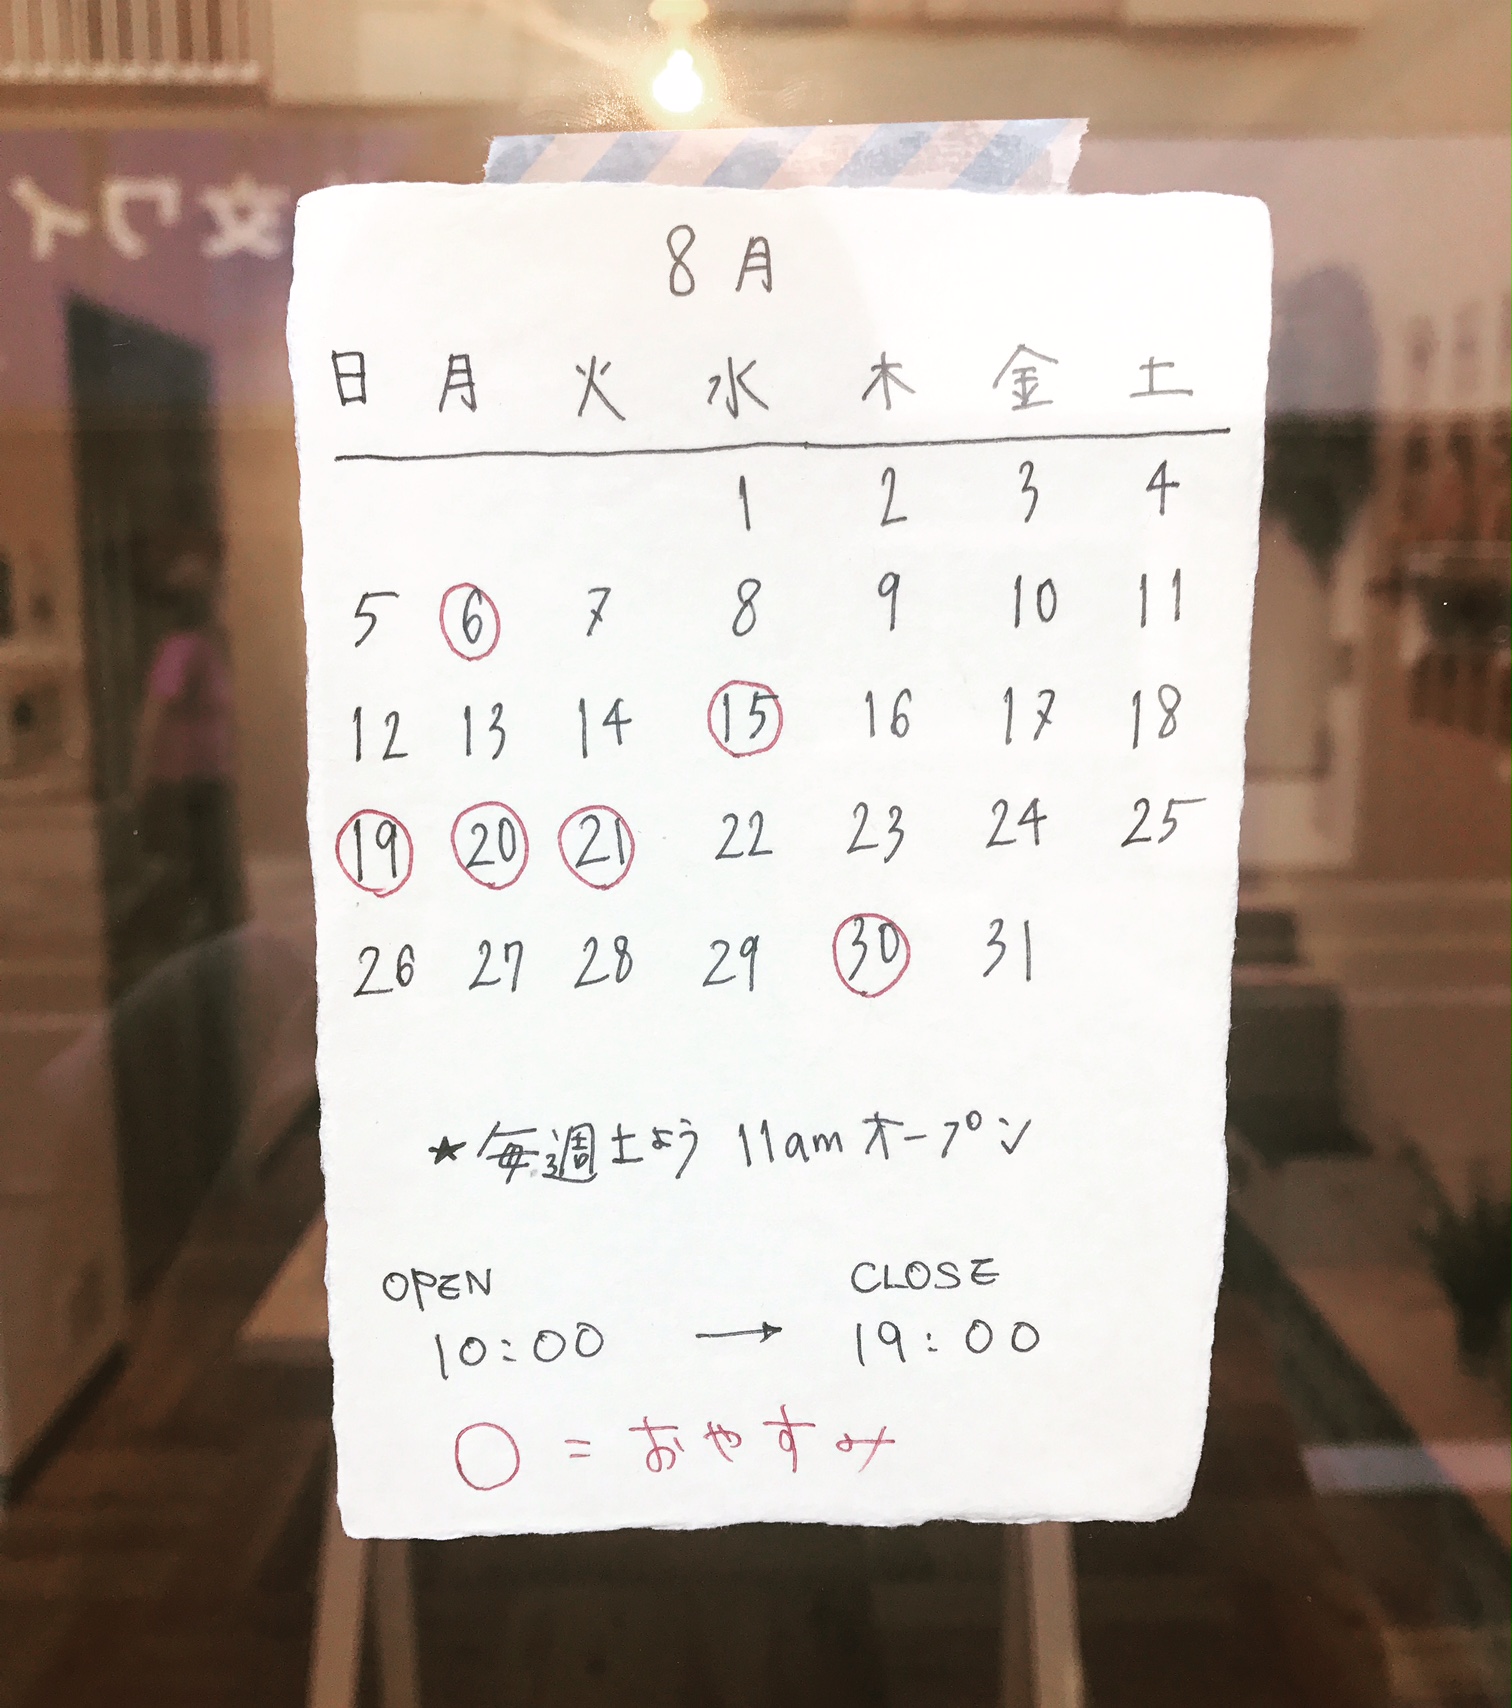 8月
日 月 火 水 木 金 土
1 2 3 4
5 6 7 8 9 10 11
12 13 14 15 16 17 18
19 20 21 22 23 24 25
26 27 28 29 30 31
★毎週土よう 11amオープン
OPEN CLOSE
10:00 → 19:00
○ = おやすみ